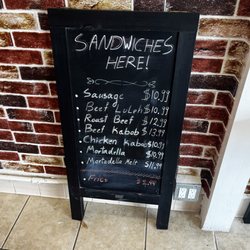 SANDWICHES
HERE!
Sausage $10.99
Beef Luleh $10.99
Roast Beef $12.99
Beef Kabob $13.99
Chicken Kabob $10.99
Mortadella $10.99
Mortadella Melt $11.99
Fries $2.99